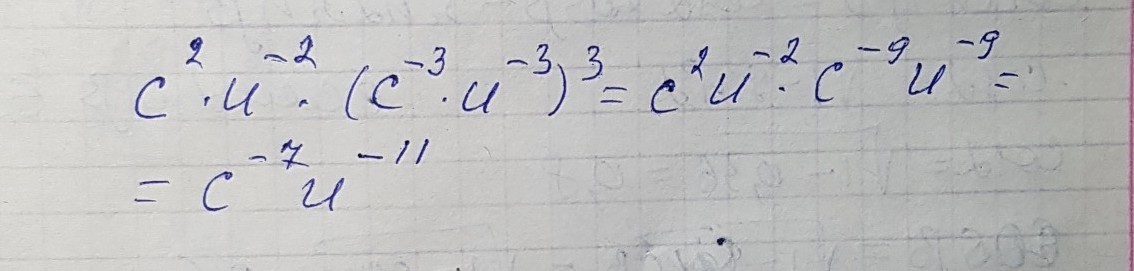 c² · u⁻² · (c⁻³ · u⁻³)³ = c²u⁻² · c⁻⁹u⁻⁹ =
= c⁻⁷u⁻¹¹